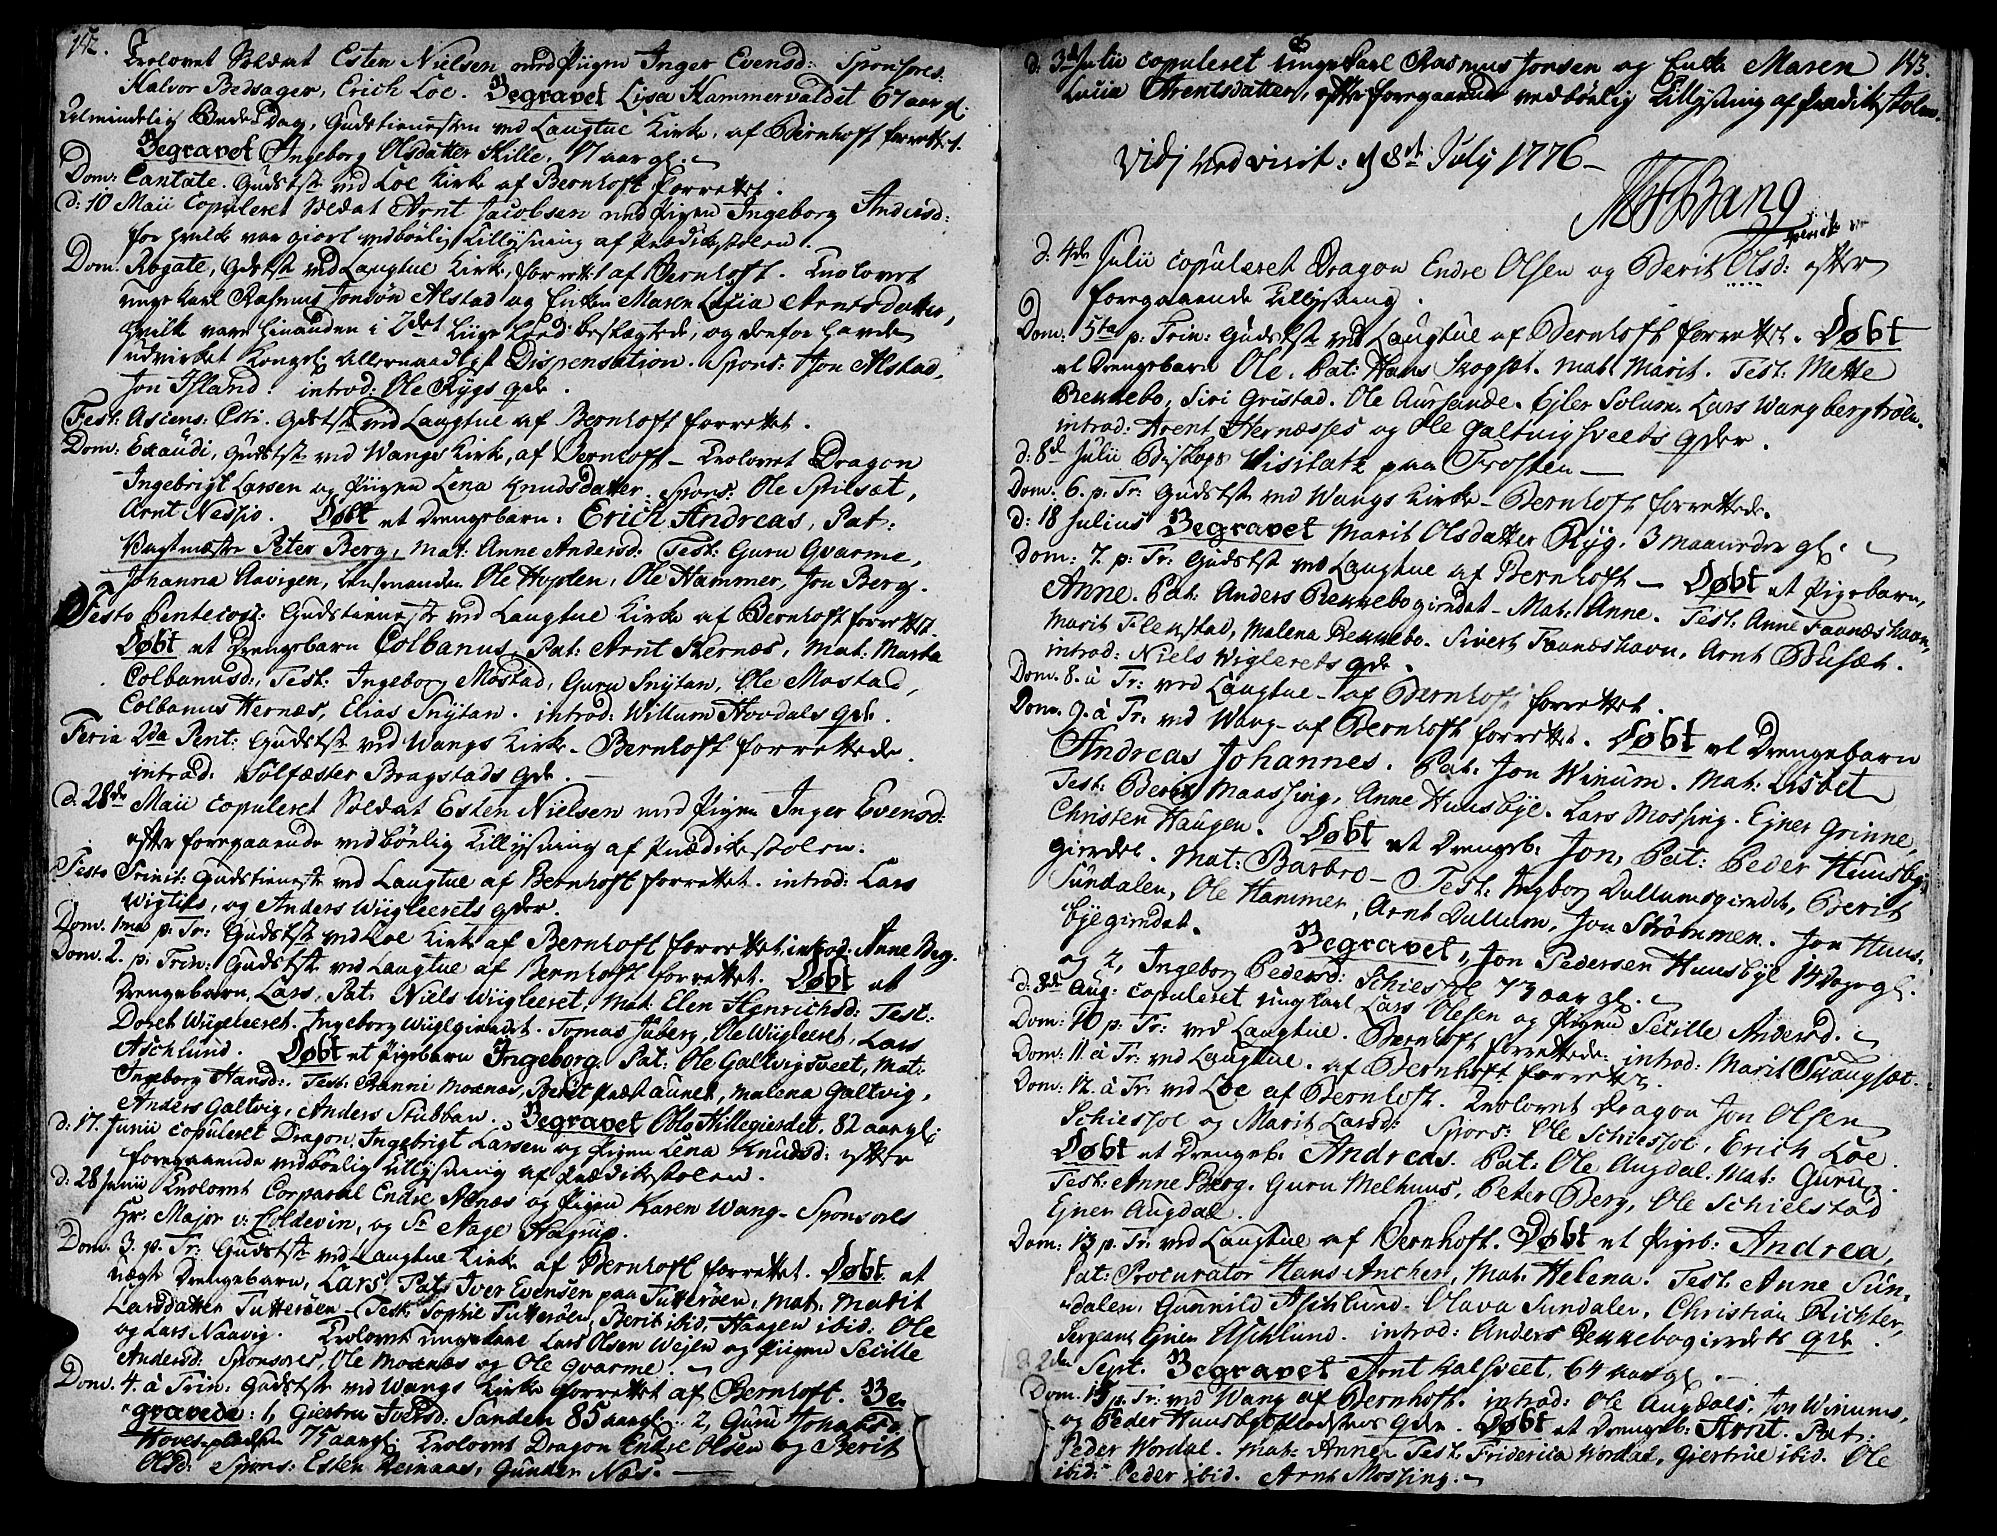 142.
Trolovet Soldat Esten Nielsen med Pigen Inger Evensd: Sponsores:
Halvor Bedsager, Erich Loe. Begravet Lisa Hammervaldet 67 aar gl.
Almindelig Bededag, Gudstienesten ved Laugtue Kirke, af Bernhoft forrettet.
Begravet Ingeborg Olsdatter Kille, 17 aar gl.
Dom: Cantate. Gudstst ved Loe Kirke af Bernhoft forrettet.
d: 10 Maii copuleret Soldat Arnt Jacobsen med Pigen Ingeborg Andersd:
for hvilke var giort vedbørlig Tillysning af Prædikestolen.
Dom. Rogate, Gdstst ved Laugtue Kirke, forrettet af Bernhoft. Trolovet
unge karl Rasmus Jonsøn Alstad og Enken Maren Lucia Arntsdatter,
hvilke vare hinanden i 2det Liige Leed beslægtede, og derfor havde
udvirket Kongel: allernaadigst Dispensation. Spons: Jon Alstad,
Jon Island. introd: Ole Rygs qde.
Fest: Ascens: Xsti. Gdstst ved Laugtue af Bernhoft forrettet.
Dom: Exaudi, Gudstst ved Wangs Kirke, af Bernhoft – Trolovet Dragon
Ingebrigt Larsen og Pigen Lena Knudsdatter. Spons: Ole Spilsæt,
Arnt Nessio. Døbt et Drengebarn: Erich Andreas, Pat:
Vagtmæster Peter Berg, Mat: Anne Andersd: Test: Guru Qvarme,
Johanna Aavigen, Lensmanden Ole Hopten, Ole Hammer, Jon Berg.
Festo Pentecost: Gudstieneste ved Laugtue Kirke af Bernhoft forrettet.
Døbt et Drengebarn Colbanus, Pat: Arnt Hernæs, Mat: Marta
Colbanusd:, Test: Ingeborg Mostad, Guru Snytan, Ole Mostad,
Colbanus Hernæs, Elias Snytan. introd: Willum Hovdals qde.
Feria 2da Pent: Gudstst ved Wangs Kirke – Bernhoft forrettede
introd: Solfæster Bragstads qde.
d: 28de Maii copuleret Soldat Esten Nielsen med Pigen Inger Evensd:
efter foregaaende vedbørlig Tillysning af Prædikestolen.
Festo Trinit: Gudstieneste ved Laugtue af Bernhoft forrettet. introd: Lars
Wigtils, og Anders Wiigleerets qder.
Dom. 1ma p. Tr: Gudstst ved Loe Kirke af Bernhoft forrettet, introd: Anne Beg.
Dom. 2. p. Trin: Gudstst ved Laugtue af Bernhoft forrettet. Døbt et
Drengebarn, Lars, Pat: Niels Wiigleeret. Mat: Elen Henrichsd: Test:
Doret Wiigleeret. Ingeborg Wiiglgierdet. Tomas Juberg, Ole Wiigleeret, Lars
Aschlund. Døbt et Pigebarn Ingeborg. Pat: Ole Galtvigsveet, Mat:
Ingeborg Hansd:. Test: Canni Moxnæs, Beret Præstaunet, Malena Galtvig,
Anders Galtvig, Anders Stubban. Begravet Ole Killegierdet. 82 aar gl:
d: 17. Junii copuleret Dragon, Ingebrigt Larsen og Pigen Lena Knudsd: efter
foregaaende vedbørlig Tillysning af Prædikestolen.
d: 28 Junii Trolovet Corporal Endre Aknæs og Pigen Karen Wang – Sponsores
Hr. Major v: Coldevin, og Sr Aage Hagrup.
Dom. 3. p. Tr: Gudstst ved Laugtue Kirke af Bernhoft forrettet. Døbt et
uægte Drengebarn, Lars, Pat: Iver Evensen paa Tutterøen, Mat: Marit
Larsdatter Tutterøen – Test: Sophie Tutterøen, Berit ibid, Haagen ibid. Ole
og Lars Naavig. Trolovet Ungekarl Lars Olsen Weien og Pigen Secille
Andersd: Sponsores, Ole Moxnæs og Ole Qvarme.
Dom. 4. à Trin: Gudstst ved Wangs Kirke forrettet af Bernhoft. Be-
gravede: 1, Giertru Iversd: Sanden 85 aar gl. 2, Guru Johansd:
Hoves-pladsen 75 aar gl. Trolovet Dragon Endre Olsen og Berit
Olsd: Spons: Esten Reinaas, Gunder Næs. –
143.
d: 3de Julii copuleret ungekarl Rasmus Jonsen og Enke Maren
Lucia Arentsdatter, efter foregaaende vedbørlig Tillysning af Prædikestolen.
Vidj ved visit: d 8de July 1776 –
MFBang
d: 4de Julii copuleret Dragon Endre Olsen og Berit Olsd: efter
foregaaende Tillysning.
Dom. 5ta p. Trin: Gudstst ved Laugtue af Bernhoft forrettet. Døbt
et Drengebarn Ole. Pat: Hans Skogset. Mat: Marit. Test: Mette
Rekkebo, Siri Gristad. Ole Aursande. Ejler Solum. Lars Wangbergtrøen.
introd: Arent Hernæsses og Ole Galtvigsveets qder.
d: 8de Julii Biskops Visitatz paa Frosten –
Dom. 6. p. Tr: Gudstst ved Wangs Kirke – Bernhoft forrettede.
d: 18 Julius Begravet Marit Olsdatter Ryg. 3 maaneder gl.
Dom: 7. p. Tr: Gudstst ved Laugtue af Bernhoft – Døbt et Pigebarn,
Anne. Pat: Anders Rekkebogierdet – Mat: Anne. Test: Anne Faanæshavn,
Marit Flekstad, Malena Rekkebo. Sivert Faanæshavn, Arnt Busæt.
introd: Niels Wiglerets qde.
Dom. 8. à Tr: ved Laugtue – af Bernhoft forrettet.
Dom. 9. à Tr: ved Wang – af Bernhoft forrettet. Døbt et Drengebarn
Andreas Johannes. Pat: Jon Winum. Mat: Lisbet
Test: Berit Maassing, Anne Huusbye. Lars Mossing. Ejner Grinne,
Christen Haugen. Døbt et Drengeb: Jon, Pat: Peder Huusbye
gierdet. Mat: Barbro – Test: Ingborg Dullumsgierdet, Berit
Sundalen, Ole Hammer, Arnt Dullum, Jon Strømmen. Jon Huus-
byegierdet. Begravet, Jon Pedersen Huusbye 14 dage gl.
og 2, Ingeborg Pedersd: Schiesføl 73 aar gl.
d: 8de Aug: copuleret ungkarl Lars Olesen og Pigen Secille Andersd.
Dom: 10 p. Tr: ved Laugtue. Bernhoft forrettede. introd: Marit Skaugsæt.
Dom: 11. à Tr: ved Laugtue. af Bernhoft forrettet.
Dom: 12. à Tr: ved Loe af Bernhoft. Trolovet Dragon Jon Olsen
Schiesføl og Marit Larsd: Spons: Ole Schiesføl, Erich Loe.
Døbt et Drengeb: Andreas. Pat: Ole Augdal. Mat: Guru.
Test: Anne Berg. Guru Melhuus, Peter Berg, Ole Schielstad
Ejner Augdal.
Dom: 13 p. Tr: ved Laugtue af Bernhoft. Døbt et Pigeb: Andrea,
Pat: Procurator Hans Ancher, Mat: Helena. Test: Anne Sun-
dalen, Gunnild Aschlund. Olava Sundalen, Christian Richter,
Sergeant Ejner Aschlund. introd: Anders Rekkebogierdets qde.
d. 2den Sept. Begravet Arnt Kalsveet, 64 aar gl.
Dom. 15 p. Tr: ved Wang af Bernhoft. introd: Ole Augdals, Jon Winums,
og Peder Huusbyepladsens qder. Døbt et Drengeb: Arnt. Pat:
Peder Wordal. Mat: Anne. Test: Fridericia Wordal, Giertrue ibid. Ole
ibid. Peder ibid. Arnt Mossing.